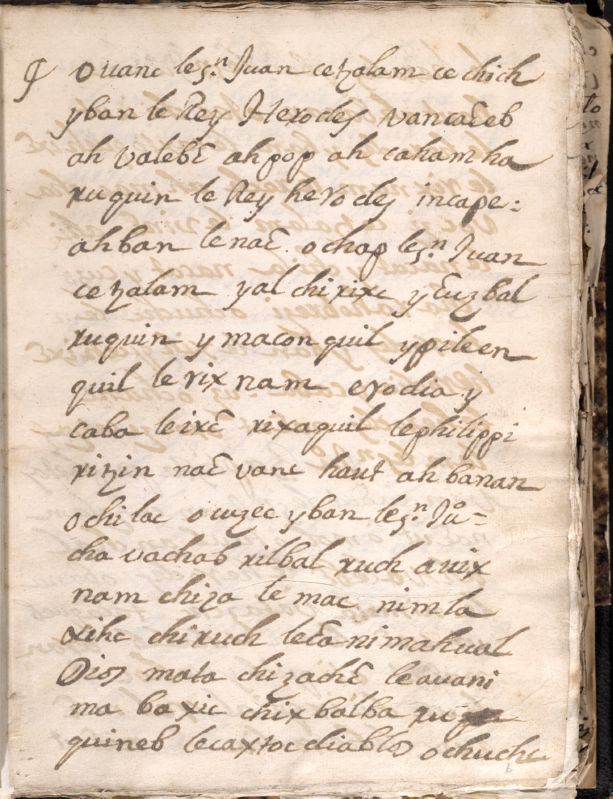 ꝗ o vanc le sn Juan cetzalam cechich
yban le Rey Herodes vancaƐeb
ah valebƐ ahpop ah cahamha
ruquin le Rey herodes incape:
ahban le naƐ. ochap le sn Juan
cetzalam yal chirixc yƐuzbal
ruquin y maconquil ypileen
quil le rixnam erodia y
caba le ixƐ rixaquil lephilippi
ritzin naƐ vanc haut ahbanan
ochilac ouzec yban le sn Juo=
cha vachab rilbal ruch auix
nam chiza le mac nim la
xihc chiruch leƐa nimahual
Dios mata chizachƐ leavani
ma baxic chixbalba
quineb lecaxtoc diablo ochuchc